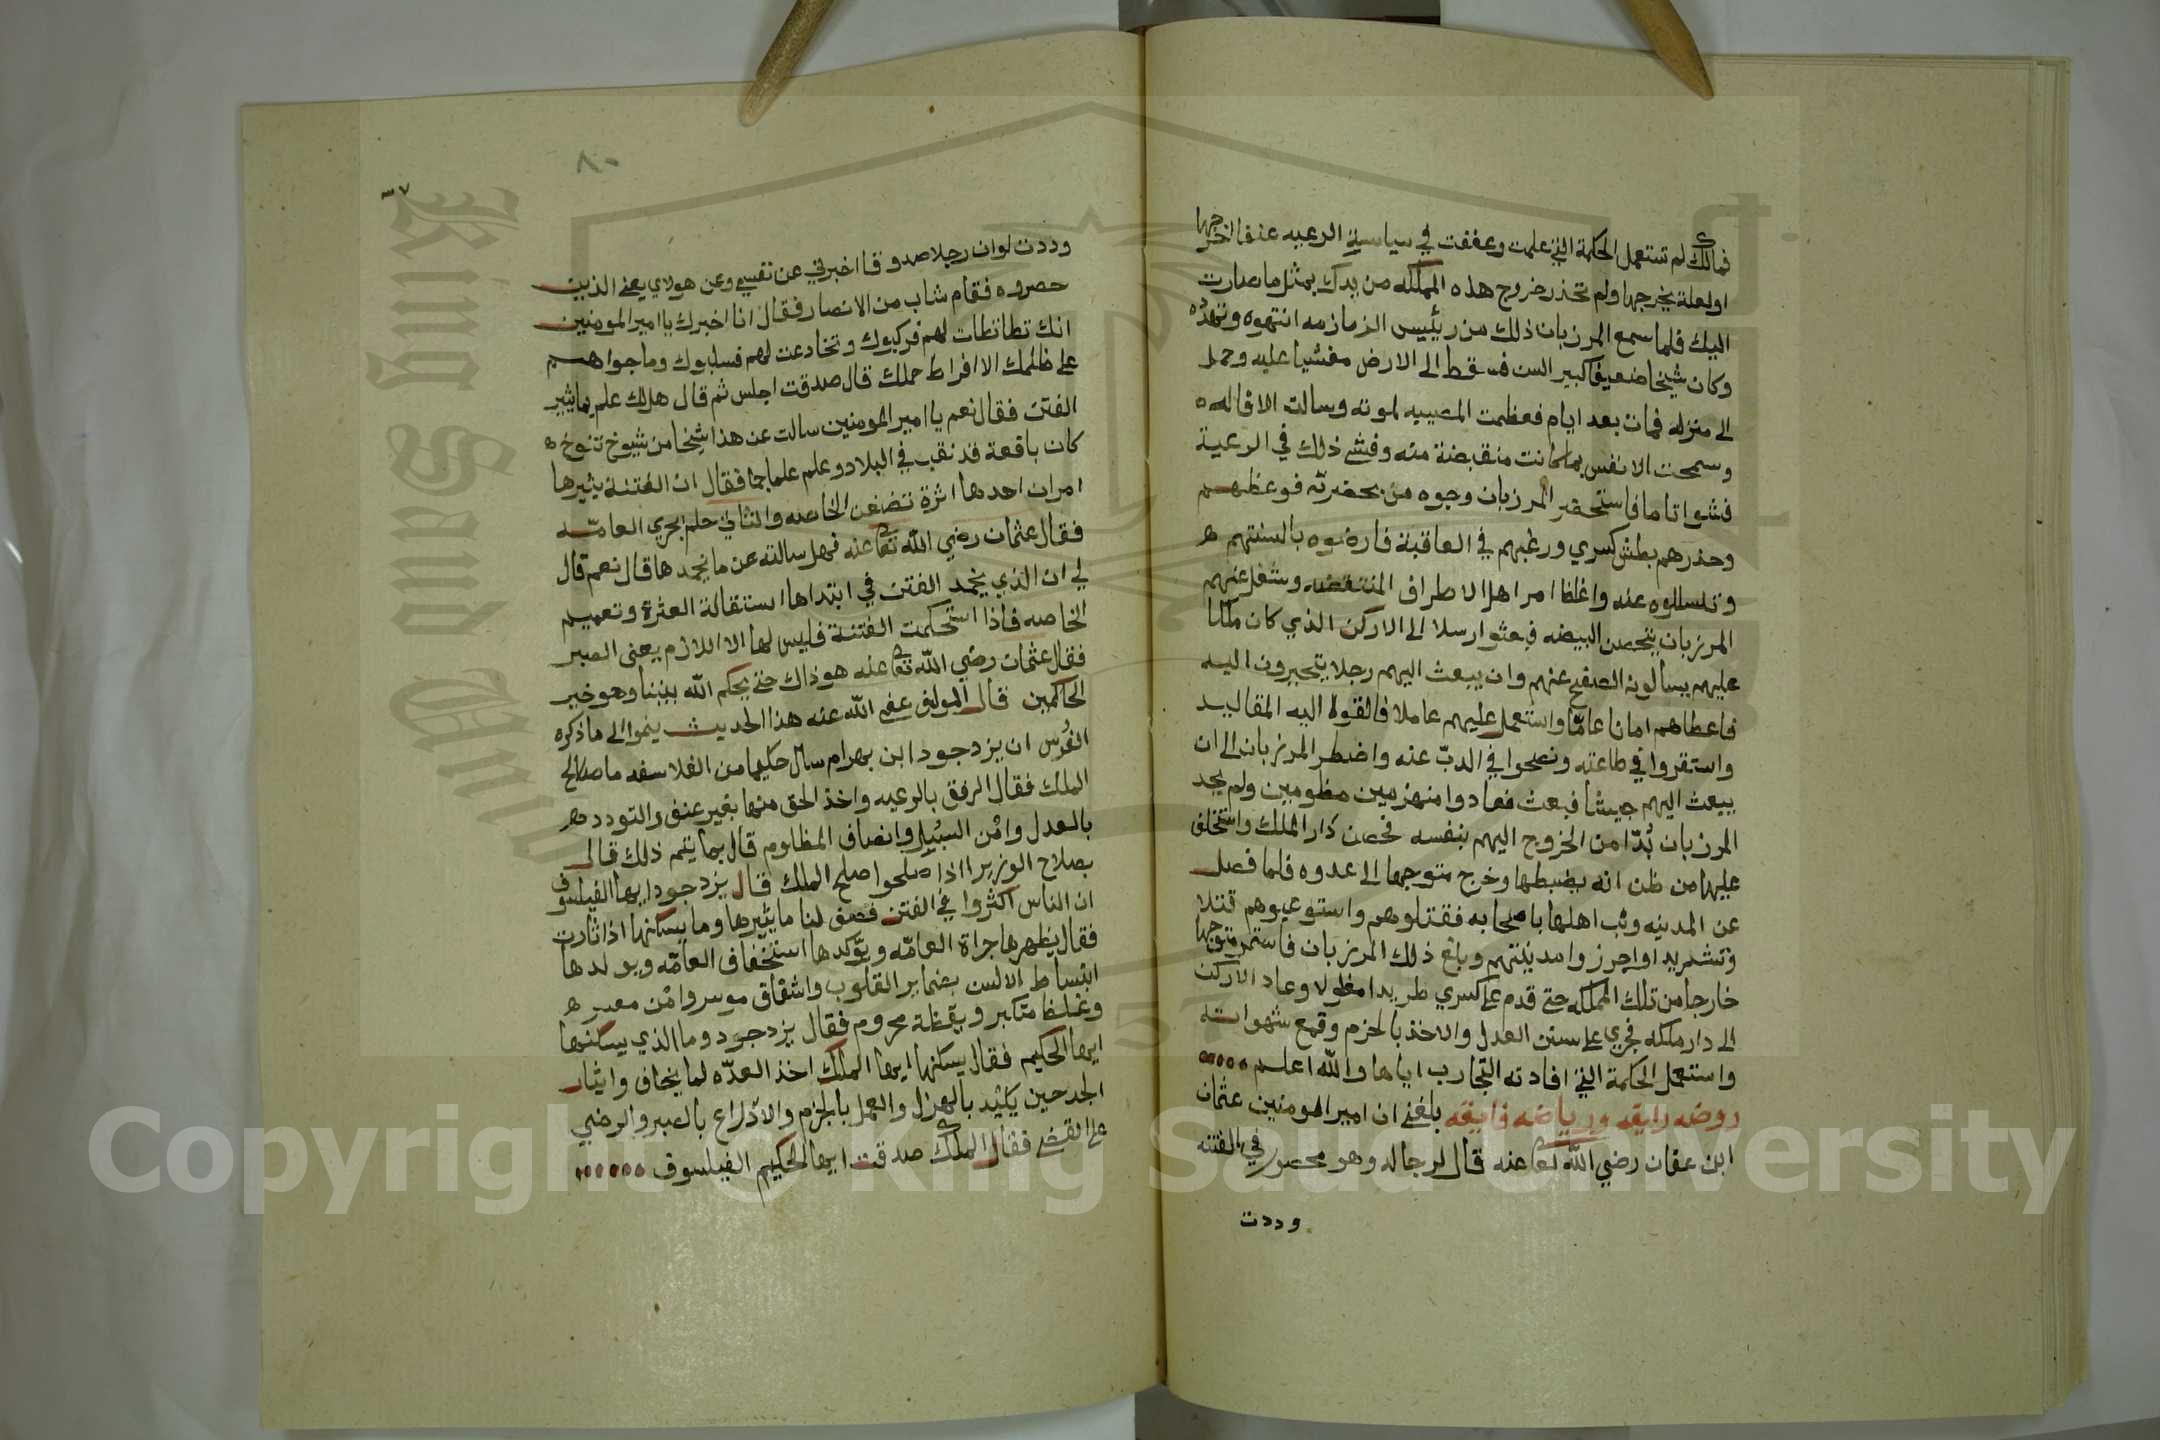 فمالك لم تستعمل الحكمة التي علمت وعففت في سياسية الرعيه عنفا اخرجها
او لعلة يخرجها ولم تحذر خروج هذه المملكه من يدك بمثل ما صارت
اليك فلما سمع المرزبان ذلك من رئيس الزمازمه انتهوه وتهدده
وكان شيخا ضعيفا كبير السن فسقط الى الارض مغشيا عليه وحمل
الى منزله فمات بعد ايام فعظمت المصيبه لموته وسالت الاقاله
وسمحت الانفس بما كانت منقبضة منه وفشى ذلك في الرعية
فشوا تاما فاستحضر المرزبان وجوه من بحضرته فوعظهم
وحذرهم بطش كسري ورغبهم في العاقبة فارضوه بالسنتهم
وتسللوه عنه واغلظ امر اهل الاطراف المنتقضه وشغل عنهم
المرزبان بتحصن البيضه فبعثوا رسلا الى الاركن الذي كان ملكا
عليهم يسألونه الصفح عنهم وان يبعث اليهم رجلا يتحيرون اليه
فاعطاهم امانا عامّا واستعمل عليهم عاملا فالقوا اليه المقاليد
واستقروا في طاعته ونصحوا في الدبّ عنه واضطر المرزبان الى ان
يبعث اليهم جيشا فبعث فعادوا منهزمين مظومين ولم يجد
المرزبان بُدّا من الخروج اليهم بنفسه فحصن دار الملك واستخلف
عليها من ظن انه يضبطها وخرج متوجها الى عدوه فلما فصل
عن المدينه وثب اهلها باصحابه فقتلوهم واستوعبوهم قتلا
وتشريدا واحرزوا مدينتهم وبلغ ذلك المرزبان فاستمر متوجها
خارجا من تلك المملكه حتى قدم على كسري طريدا مغلولا وعاد الاركن
الى دار ملكه فجرى على سنن العدل والاخذ بالحزم وقمع شهواته
واستعمل الحكمة التي افادته التجارب اياها والله اعلم
روضه رايقه ورياضه فايقه بلغني ان امير المومنين عثمان
ابن عفان رضي الله تعا عنه قال لرجاله وهو محصور في الفتنه
وددت
٨٠
٣٧
وددت لو ان رجلا صدوقا اخبرني عن نفسي وعن هولاي يعني الذين
حصروه فقام شاب من الانصار فقال انا اخبرك يا امير المومنين
انك تطاتطات لهم فركبوك وتخادعت لهم فسلبوك وما جراهم
على ظلمك الا افراط حملك قال صدقت اجلس ثم قال هل لك علم بما يثير
الفتن فقال نعم يا امير المومنين سالت عن هذا شيخا من شيوخ تنوخ
كان باقعة قد نقب في البلاد وعلم علما جما فقال ان الفتنة يثيرها
امران احدها اثرة تضغن الخاصه والثاني حلم يجري العامّه
فقال عثمان رضي الله تعا عنه فهل سالته عن ما يخمدها قال نعم قال
لي ان الذي يخمد الفتن في ابتداها استقالة العثرة وتعميم
الخاصه فاذا استحكمت الفتنة فليس لها الا اللازم يعني الصبر
فقال عثمان رضي الله تعا عنه هو ذاك حتى يحكم الله بيننا وهو خير
الحاكمين قال المولف عفي الله عنه هذا الحديث ينموا الى ما ذكره
الفُرس ان يزدجود ابن بهرام سال حكيما من الفلاسفه ما صلاح
الملك فقال الرفق بالرعيه واخذ الحق منها بغير عنف والتودد
بالعدل وامْن السُبُل وانصاف المظلوم قال بما يتم ذلك قال
بصلاح الوزير ا اذا صلحوا صلح الملك قال يزدجود ايها الفيلسوف
ان الناس اكثروا في الفتن فصف لنا ما يثيرها وما يسكنها اذا ثارت
فقال يظهرها جراة العامّه ويؤكدها استخفاف العامّه ويولدها
ابتساط الالسن بضماير القلوب واشقاق موسر وامْن معسر
وغلظ متكبر ويقظة محروم فقال يزدجود وما الذي يسكنها
ايها الحكيم فقال يسكنها ايها الملك اخذ العدّه لما يخاف وايثار
الجد حين يلتْد بالهزل والعمل بالحزم والادراع بالصبر والرضي
على القضى فقال الملك صدقت ايها الحكيم الفيلسوف
King Saud University
Copyright © King Saud University